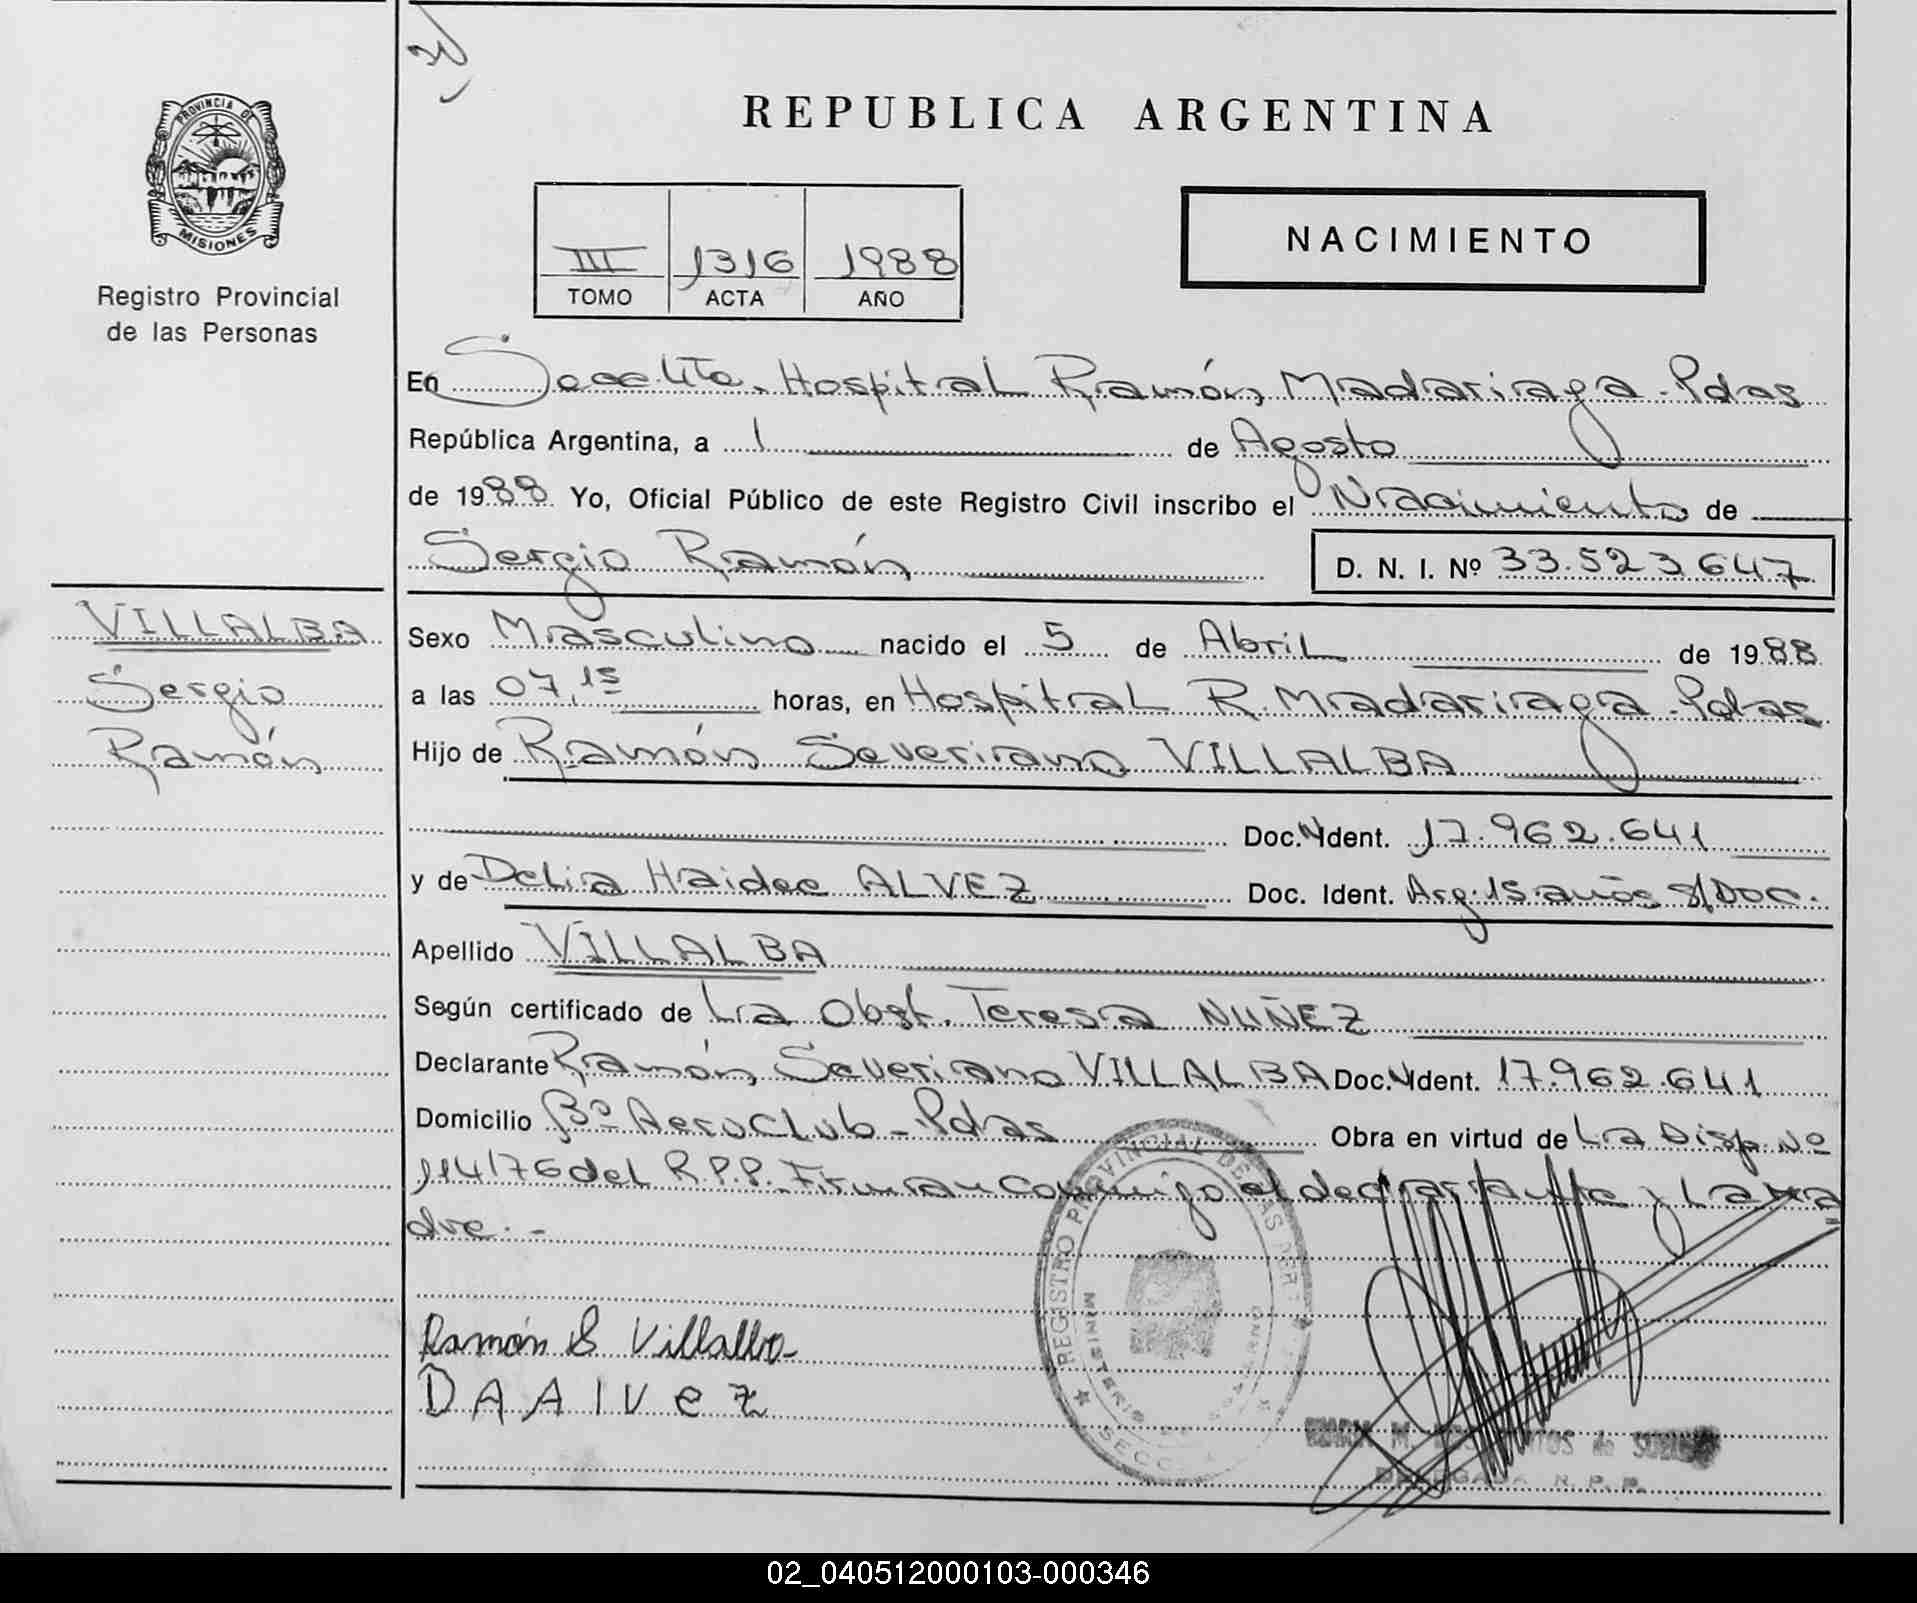 REPUBLICA ARGENTINA
PROVINCIA DE
MISIONES
Registro Provincial
de las Personas
III 1316 1988
TOMO ACTA AÑO
NACIMIENTO
En Hospital Ramón Madariaga - Pdas
República Argentina, a 1 de Agosto
de 1988 Yo, Oficial Público de este Registro Civil inscribo el Nacimiento de
Sergio Ramón D. N. I. Nº 33.523647
VILLALBA
Sergio
Ramón
Sexo Masculino nacido el 5 de Abril de 1988
a las 07,15 horas, en Hospital R. Madariaga - Pdas
Hijo de Ramón Severiano VILLALBA
Doc. N Ident. 17.962.641
y de Delia Haidee ALVEZ Doc. Ident. Arg. 15 años s/Doc.
Apellido VILLALBA
Según certificado de La Obst. Teresa NUÑEZ
Declarante Ramón Severiano VILLALBA Doc. N Ident. 17.962.641
Domicilio Bº AeroClub - Pdas Obra en virtud de La Disp. Nº
114/76 del R.P.P. Firman conmigo el declarante y La ma
dre. -
Ramón S Villalba
D A Alvez
REGISTRO PROVINCIAL DE LAS PER
MINISTERIO
SECC
M. de
DELEGADA R. P. P.
02_040512000103-000346